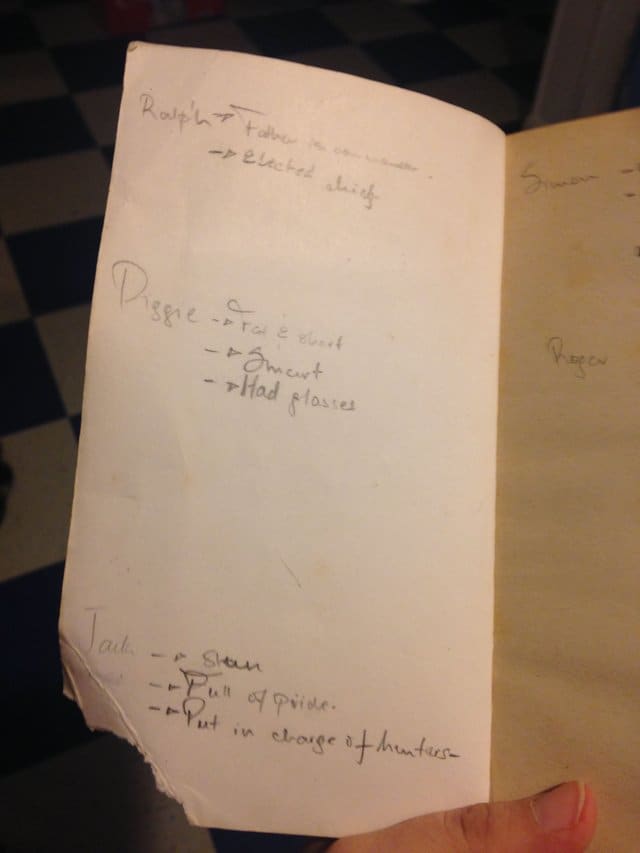 Ralph → Father is commander.
→ Elected chief
Piggie → Fat & short
→ Smart
→ Had glasses
Jack →
→ Full of pride.
→ Put in charge of hunters-
Simon -
Roger